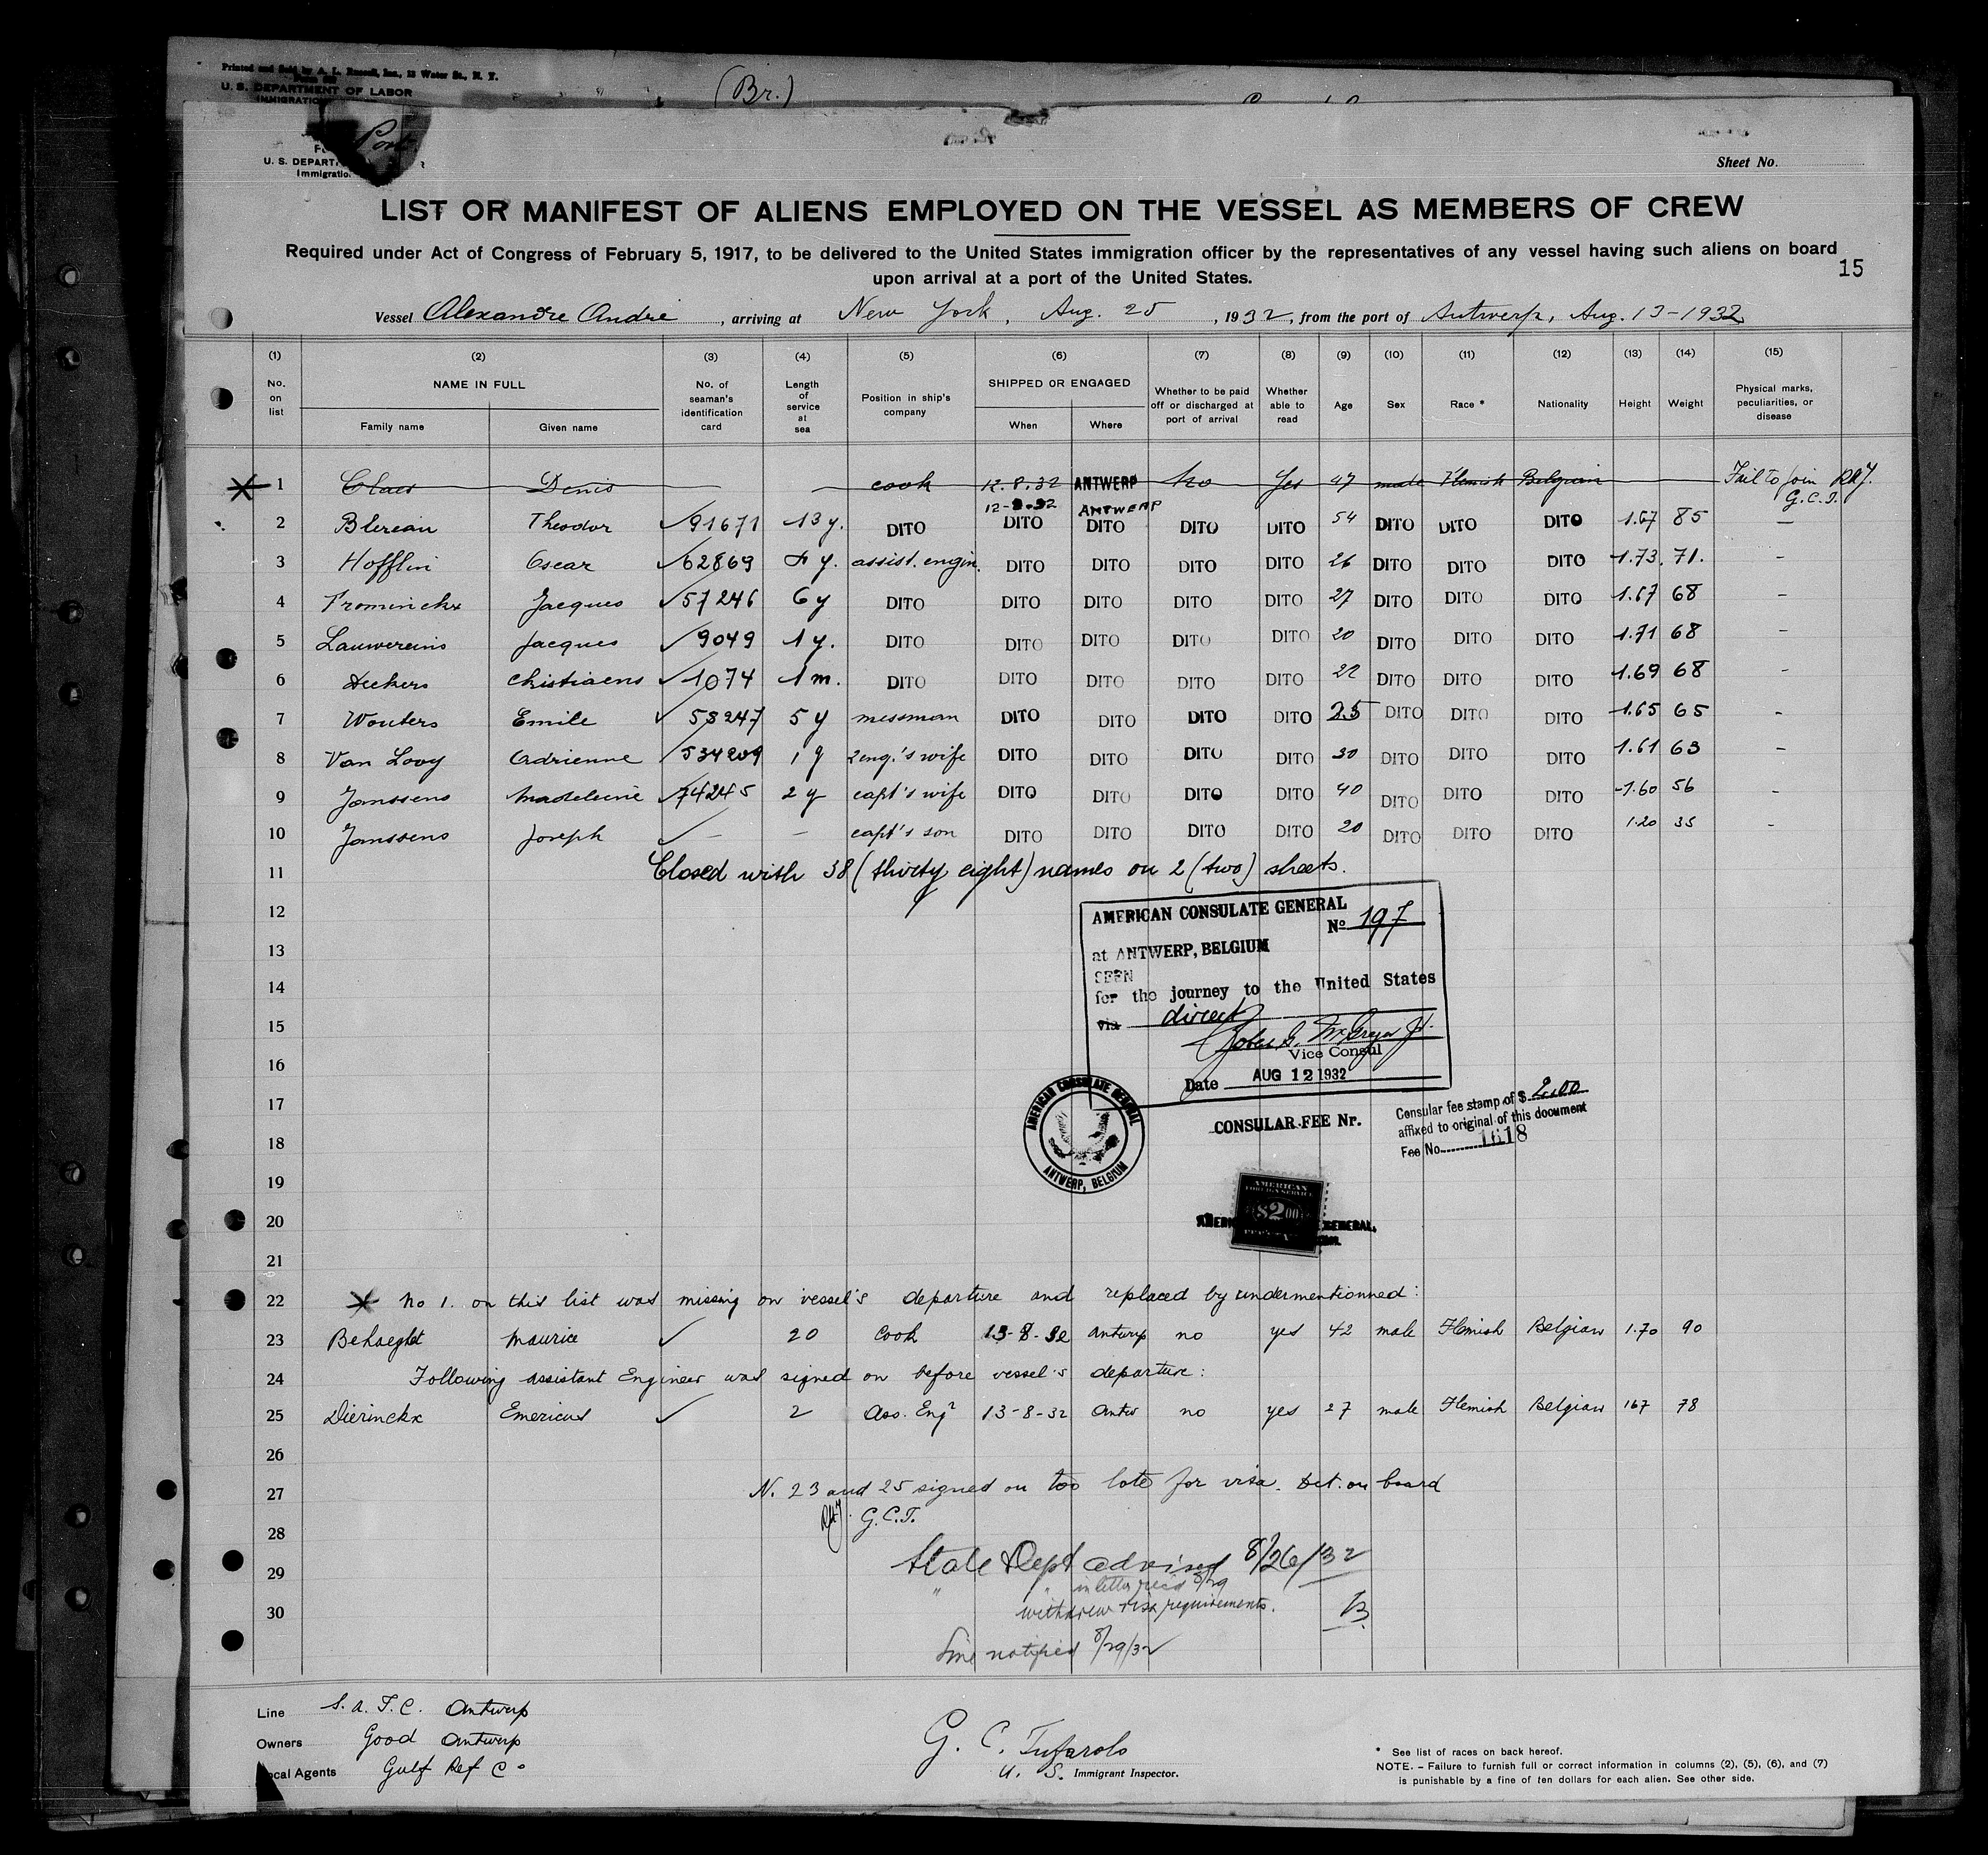 Printed and Sold by A. L. Russell, Inc., 12 Water St., N. Y.
U. S. DEPARTMENT OF LABOR
IMMIGRATION
(Br.)
Port
U. S. DEPART
Immigratio
Sheet No.
LIST OR MANIFEST OF ALIENS EMPLOYED ON THE VESSEL AS MEMBERS OF CREW
Required under Act of Congress of February 5, 1917, to be delivered to the United States immigration officer by the representatives of any vessel having such aliens on board
upon arrival at a port of the United States.
15
Vessel Alexandre Andre, arriving at New York, Aug. 25, 1932, from the port of Antwerp, Aug. 13-1932
(1) (2) (3) (4) (5) (6) (7) (8) (9) (10) (11) (12) (13) (14) (15)
No. on list NAME IN FULL Family name Given name No. of seaman's identification card Length of service at sea Position in ship's company SHIPPED OR ENGAGED When Where Whether to be paid off or discharged at port of arrival Whether able to read Age Sex Race * Nationality Height Weight Physical marks, peculiarities, or disease
1 Claes Denis — — cook 12.8.32 ANTWERP No Yes 47 male Flemish Belgian Fail to join
G.C.T.
12-8-32 ANTWERP
2 Blereau Theodor 91671 13 y. DITO DITO DITO DITO DITO 54 DITO DITO DITO 1.67 85 —
3 Hofflin Oscar 62869 4 y. assist. engin. DITO DITO DITO DITO 26 DITO DITO DITO 1.73. 71. -
4 Frominckx Jacques 57246 6 y DITO DITO DITO DITO DITO 27 DITO DITO DITO 1.67 68 -
5 Lauwereins Jacques 9049 1 y. DITO DITO DITO DITO DITO 20 DITO DITO DITO 1.71 68 -
6 Deckers Christiaens 1074 1 m. DITO DITO DITO DITO DITO 22 DITO DITO DITO 1.69 68 -
7 Wouters Emile 58247 5 y messman DITO DITO DITO DITO 25 DITO DITO DITO 1.65 65 -
8 Van Looy Adrienne 534209 1 y 2 eng.'s wife DITO DITO DITO DITO 30 DITO DITO DITO 1.61 63 -
9 Janssens Madeleine 74245 2 y capt's wife DITO DITO DITO DITO 40 DITO DITO DITO 1.60 56 -
10 Janssens Joseph — — capt's son DITO DITO DITO DITO 20 DITO DITO DITO 1.20 35 -
11 Closed with 38 (thirty eight) names on 2 (two) sheets.
12
AMERICAN CONSULATE GENERAL
No 197
13
at ANTWERP, BELGIUM
SEEN
14
for the journey to the United States
15
via direct
16
Vice Consul
Date AUG 12 1932
17
AMERICAN CONSULATE GENERAL
ANTWERP, BELGIUM
CONSULAR FEE Nr.
Consular fee stamp of $ 2.00
affixed to original of this document
Fee No. 1618
18
19
AMERICAN
FOREIGN SERVICE
$2.00
20
GENERAL,
21
22 No 1. on this list was missing on vessel's departure and replaced by undermentionned:
23 Behaeghel Maurice 20 Cook 13-8-32 Antwerp no yes 42 male Flemish Belgian 1.70 90
24 Following assistant Engineer was signed on before vessel's departure:
25 Dierinckx Emericus 2 Ass. Engr 13-8-32 Antw no yes 27 male Flemish Belgian 167 78
26
27 N. 23 and 25 signed on too late for visa. Det. on board
G.C.T.
28
29 State Dept advised 8/26/32
" " in letter rec'd 8/29
30 withdrew visa requirements. B.
Line notified 8/29/32
Line S. A. T. C. Antwerp
Owners Good Antwerp
Local Agents Gulf Ref Co
G. C. Tufarolo
U. S. Immigrant Inspector.
* See list of races on back hereof.
NOTE. – Failure to furnish full or correct information in columns (2), (5), (6), and (7)
is punishable by a fine of ten dollars for each alien. See other side.